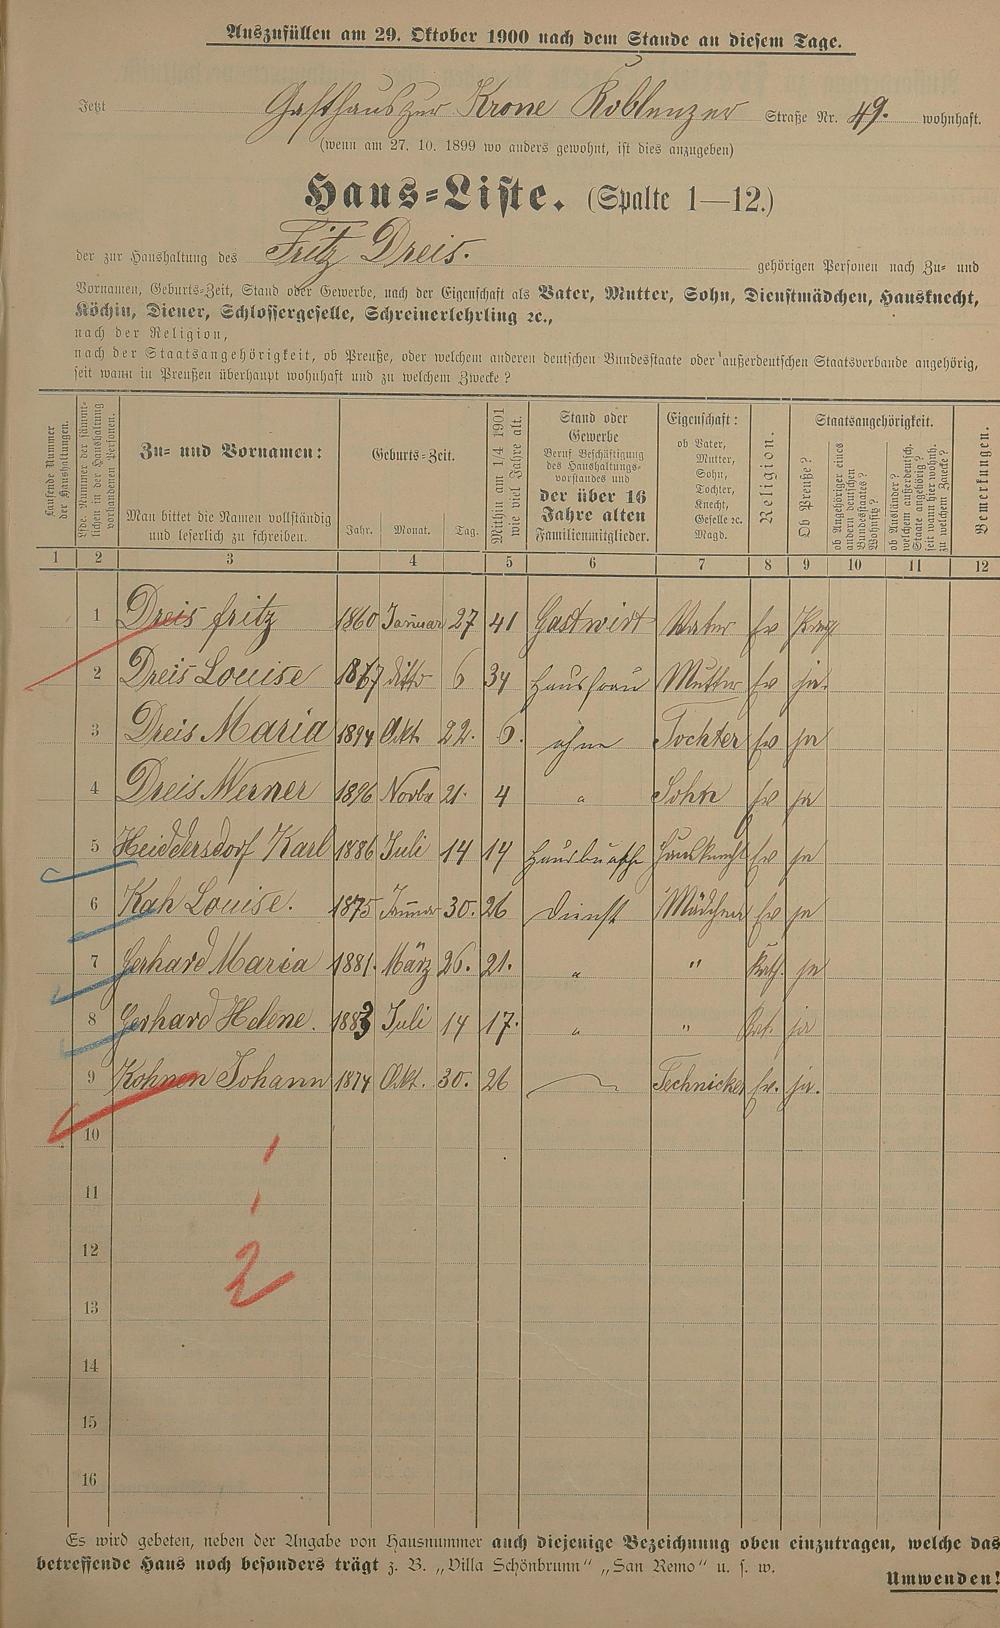 Auszufüllen am 29. Oktober 1900 nach dem Stande an diesem Tage.
Jetzt Gasthaus zur Krone Koblenzer Straße Nr. 49. wohnhaft.
(wenn am 27. 10. 1899 wo anders gewohnt, ist dies anzugeben)
Haus-Liste. (Spalte 1—12.)
der zur Haushaltung des Fritz Dreis. gehörigen Personen nach Zu- und
Vornamen, Geburts-Zeit, Stand oder Gewerbe, nach der Eigenschaft als Vater, Mutter, Sohn, Dienstmädchen, Hausknecht,
Köchin, Diener, Schlossergeselle, Schreinerlehrling ꝛc.,
nach der Religion,
nach der Staatsangehörigkeit, ob Preuße, oder welchem anderen deutschen Bundesstaate oder außerdeutschen Staatsverbande angehörig,
seit wann in Preußen überhaupt wohnhaft und zu welchem Zwecke?
Laufende Nummer
der Haushaltungen.
Lfde. Nummer der sämmt-
lichen in der Haushaltung
vorhandenen Personen.
Zu- und Vornamen:
Man bittet die Namen vollständig
und leserlich zu schreiben.
Geburts-Zeit.
Jahr. Monat. Tag.
Mithin am 1/4 1901
wie viel Jahre alt.
Stand oder
Gewerbe
Beruf Beschäftigung
des Haushaltungs-
vorstandes und
der über 16
Jahre alten
Familienmitglieder.
Eigenschaft:
ob Vater,
Mutter,
Sohn,
Tochter,
Knecht,
Geselle ꝛc.
Magd.
Religion.
Staatsangehörigkeit.
Ob Preuße?
ob Angehöriger eines
andern deutschen
Bundesstaates?
Wohnsitz?
ob Ausländer?
welchem außerdeutsch.
Staate angehörig?
seit wann hier wohnh.
zu welchem Zwecke?
Bemerkungen.
1 2 3 4 5 6 7 8 9 10 11 12
1 Dreis fritz 1860 Januar 27 41 Gastwirt Vater Ev
2 Dreis Louise 1867 ditto 6 34 Hausfrau Mutter Ev ja.
3 Dreis Maria 1894 Okt. 22. 6. ohne Tochter Ev ja
4 Dreis Werner 1896 Novbr 21. 4 " Sohn Ev ja
5 Heiddersdorf Karl 1886 Juli 14 14 Hausbursche Hausknecht Ev ja
6 Kah Louise. 1875 Januar 30. 26 Dienst Mädchen Ev ja
7 Gerhard Maria 1881. März 26. 21. " " Kath. ja
8 Gerhard Helene. 1883 Juli 14 17. " " Kat. ja
9 Kohnen Johann 1874 Okt. 30. 26 Technicker Ev. ja.
10
11
12
2
13
14
15
16
Es wird gebeten, neben der Angabe von Hausnummer auch diejenige Bezeichnung oben einzutragen, welche das
betreffende Haus noch besonders trägt z. B. „Villa Schönbrunn" „San Remo" u. s. w.
Umwenden!